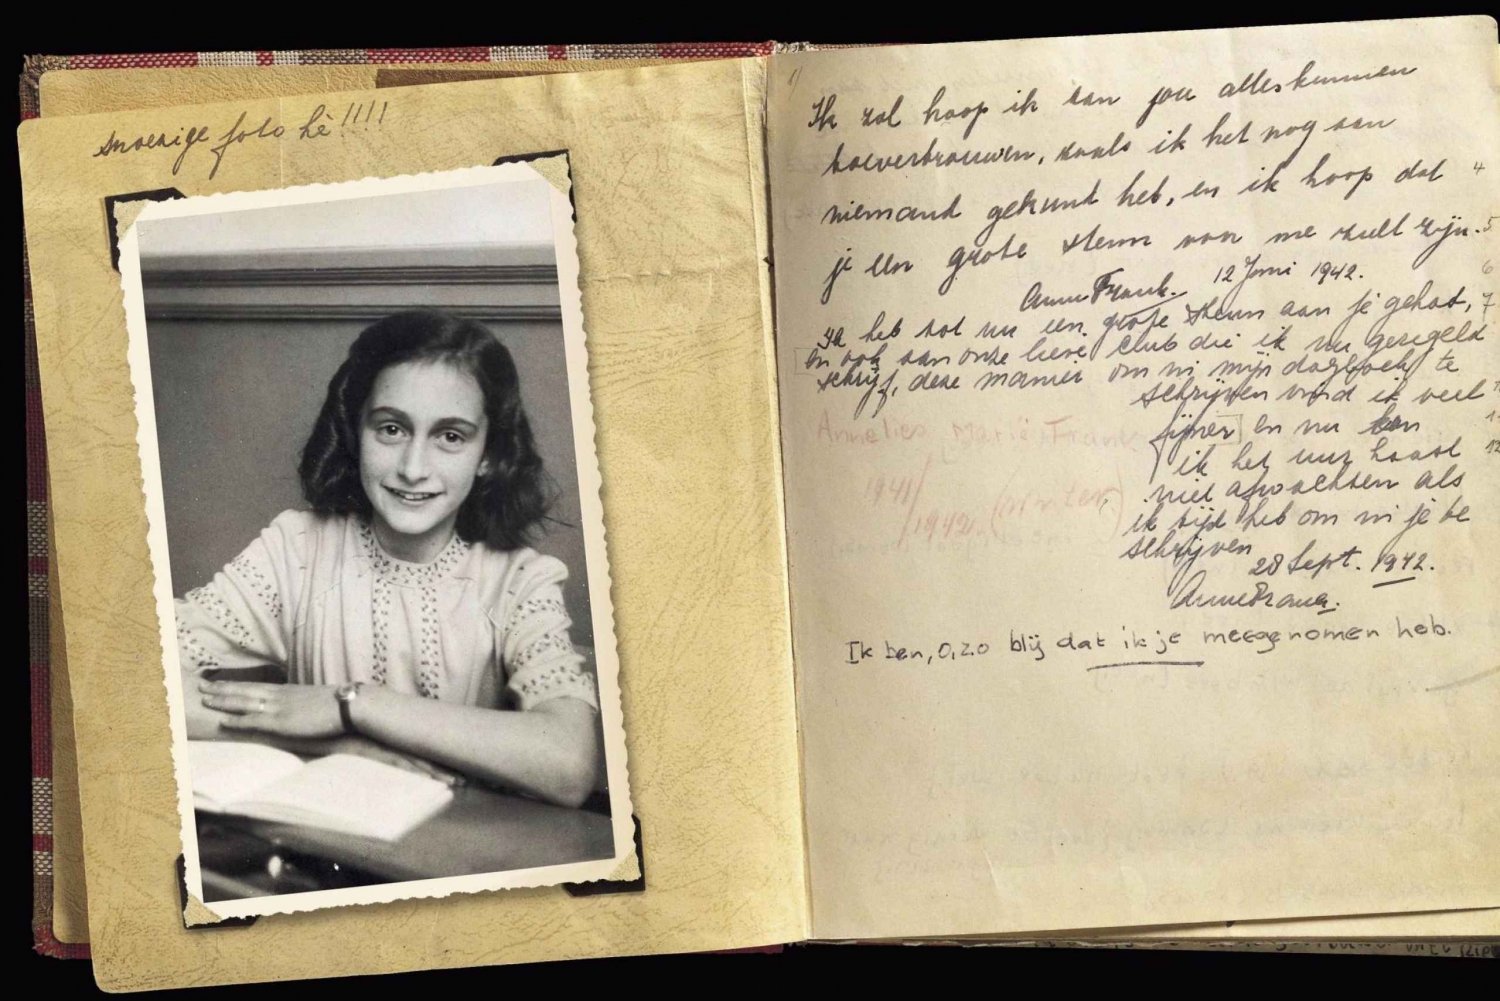 snoezige foto hè!!!!
Ik zal hoop ik aan jou alles kunnen
toevertrouwen, zoals ik het nog aan
niemand gekund heb, en ik hoop dat
4
je een grote steun van me zult zijn.
5
Anne Frank. 12 Juni 1942.
6
Ik heb tot nu een grote steun aan je gehad,
7
en ook aan onze lieve club die ik nu geregeld
schrijf, deze manier om in mijn dagboek te
schrijven vind ik veel
fijner en nu kan
ik het uur haast
12
niet afwachten als
ik tijd heb om in je te
schrijven
28 Sept. 1942.
Anne Frank.
Annelies Marie Frank
1941/
/1942. (winter)
Ik ben, o, zo blij dat ik je meegenomen heb.